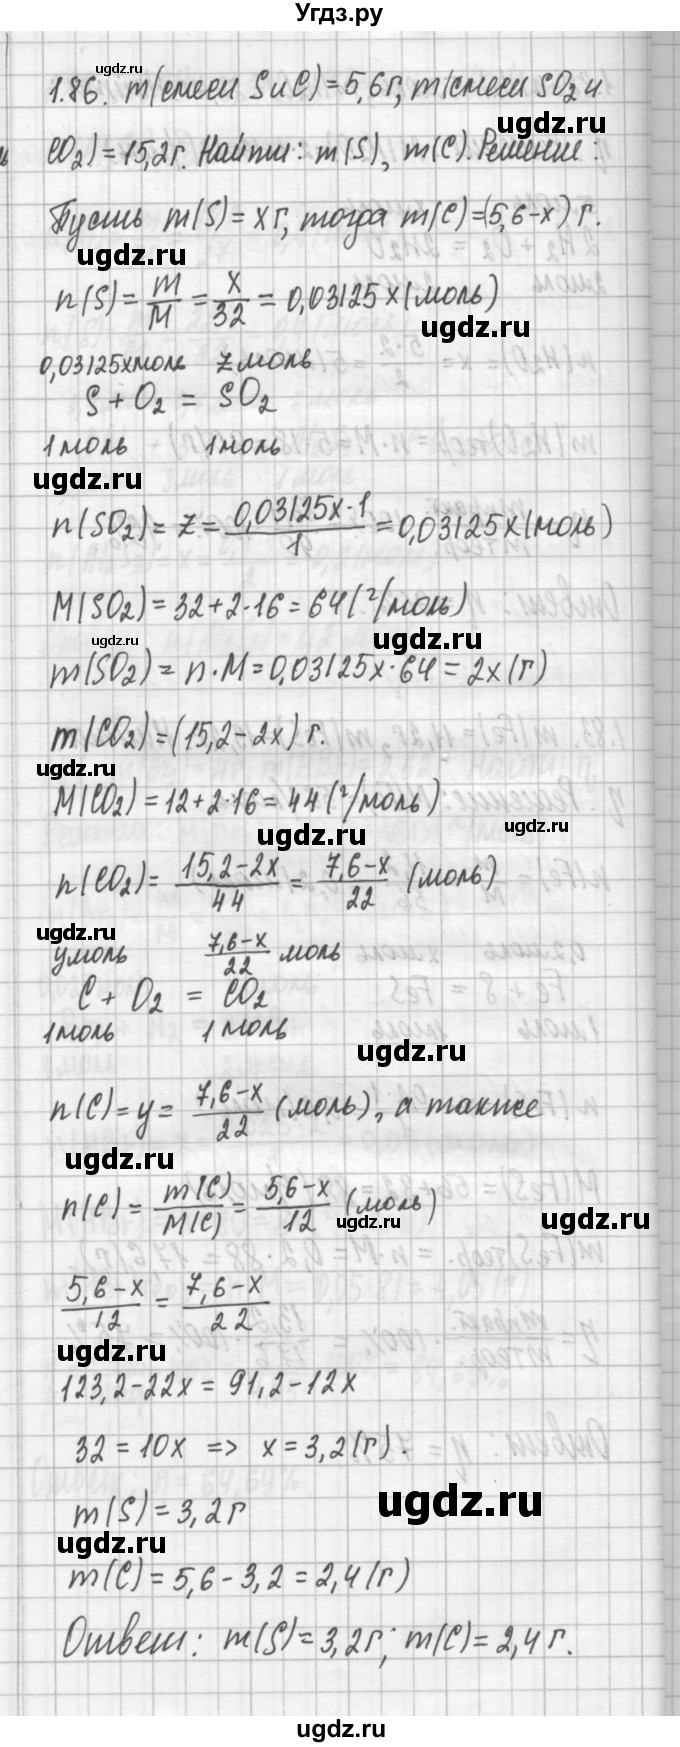 Угдз.ру
ugdz.ru
1.86. m(смеси S и C) = 5,6 г, m(смеси SO₂ и
ugdz.ru
CO₂) = 15,2 г. Найти: m(S), m(C). Решение:
Пусть m(S) = x г, тогда m(C) = (5,6-x) г.
ugdz.ru
n(S) = m/M = x/32 = 0,03125x (моль)
ugdz.ru
0,03125x моль z моль
S + O₂ = SO₂
1 моль 1 моль
ugdz.ru
n(SO₂) = z = 0,03125x·1/1 = 0,03125x (моль)
M(SO₂) = 32+2·16 = 64 (г/моль)
ugdz.ru ugdz.ru
m(SO₂) = n·M = 0,03125x·64 = 2x (г)
m(CO₂) = (15,2-2x) г.
ugdz.ru
M(CO₂) = 12+2·16 = 44 (г/моль)
ugdz.ru ugdz.ru
n(CO₂) = 15,2-2x/44 = 7,6-x/22 (моль)
ugdz.ru
y моль 7,6-x/22 моль
C + O₂ = CO₂
1 моль 1 моль
ugdz.ru
n(C) = y = 7,6-x/22 (моль), а также
ugdz.ru
n(C) = m(C)/M(C) = 5,6-x/12 (моль)
ugdz.ru ugdz.ru
5,6-x/12 = 7,6-x/22
ugdz.ru
123,2-22x = 91,2-12x
32 = 10x => x = 3,2 (г).
ugdz.ru
m(S) = 3,2 г
ugdz.ru
m(C) = 5,6-3,2 = 2,4 (г)
Ответ: m(S) = 3,2 г; m(C) = 2,4 г.
ugdz.ru